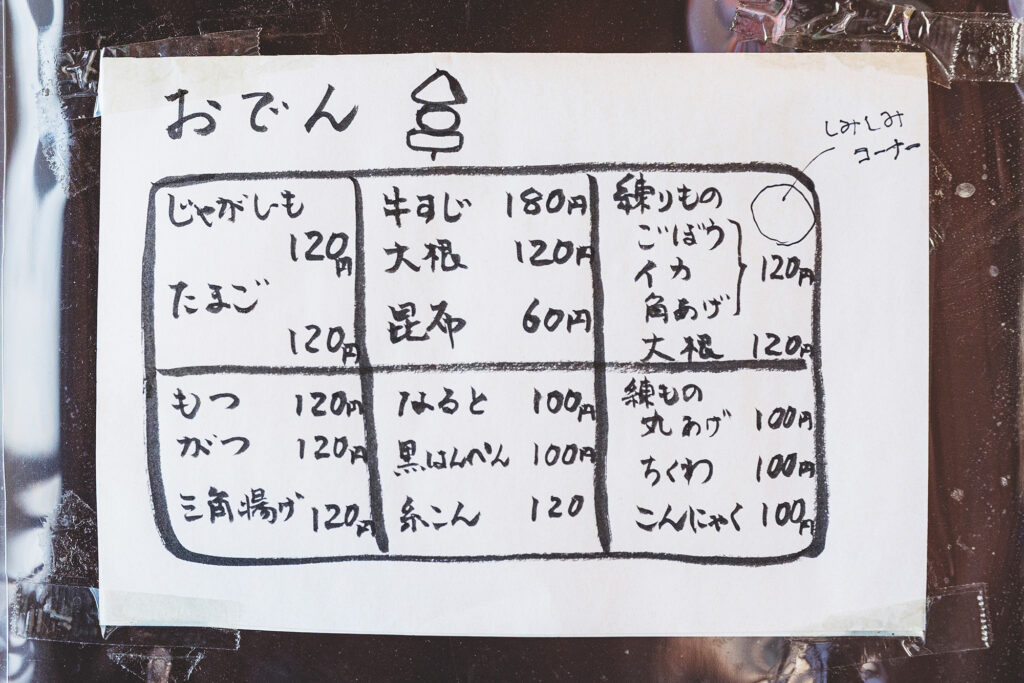 おでん
しみしみ
コーナー
じゃがいも
120円
たまご
120円
牛すじ 180円
大根 120円
昆布 60円
練りもの
ごぼう
イカ 120円
角あげ
大根 120円
もつ 120円
がつ 120円
三角揚げ 120円
なると 100円
黒はんぺん 100円
糸こん 120
練もの
丸あげ 100円
ちくわ 100円
こんにゃく 100円